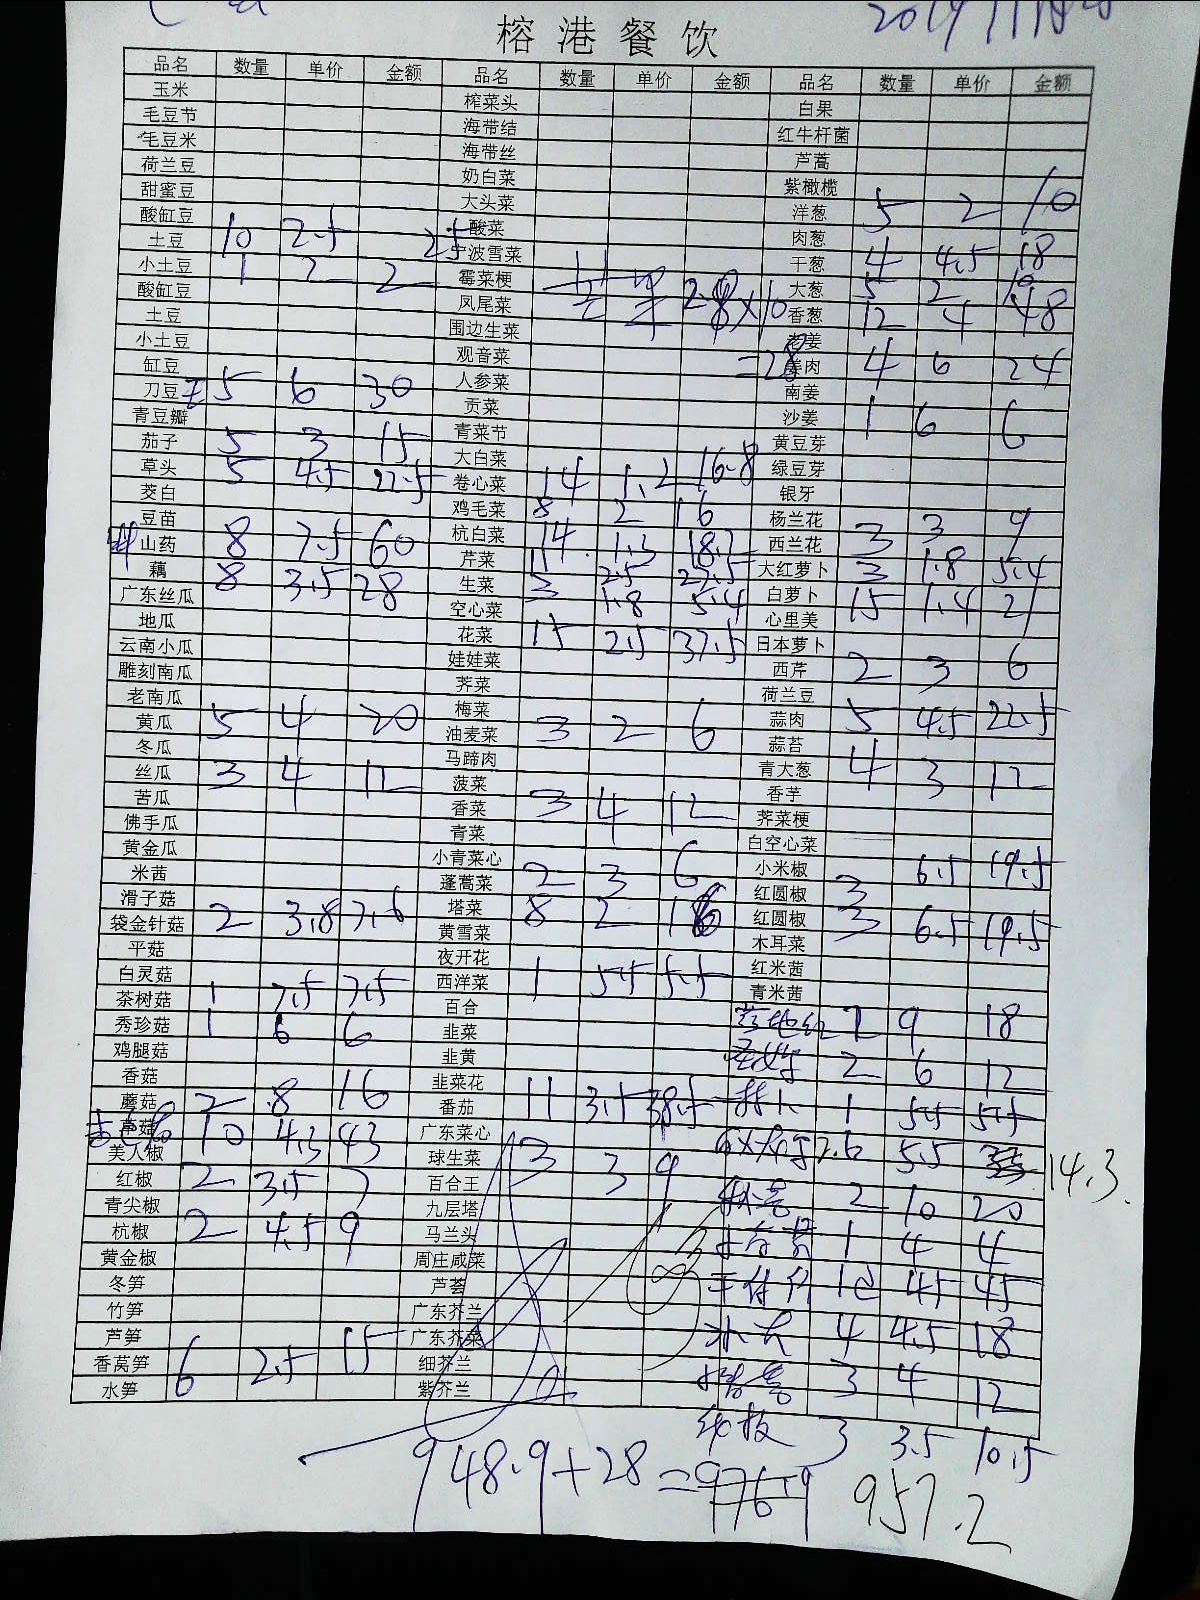 榕港餐饮
品名 数量 单价 金额 品名 数量 单价 金额 品名 数量 单价 金额
玉米 榨菜头 白果
毛豆节 海带结 红牛杆菌
毛豆米 海带丝 芦蒿
荷兰豆 奶白菜 紫橄榄
甜蜜豆 大头菜 洋葱 5 2 10
酸缸豆 酸菜 肉葱
土豆 10 2.5 25 宁波雪菜 干葱 4 4.5 18
小土豆 1 2 2 霉菜梗 28×10 大葱 5 2 10
酸缸豆 凤尾菜 香葱 12 4 48
土豆 围边生菜 老姜
小土豆 观音菜 =28 姜肉 4 6 24
缸豆 人参菜 南姜
刀豆 5 6 30 贡菜 沙姜 1 6 6
青豆瓣 青菜节 黄豆芽
茄子 5 3 15 大白菜 绿豆芽
草头 5 4.5 22.5 卷心菜 14 1.2 16.8 银牙
茭白 鸡毛菜 8 2 16 杨兰花 3 3 9
豆苗 杭白菜 14 1.3 18.2 西兰花
山药 8 7.5 60 芹菜 11 2.5 27.5 大红萝卜 3 1.8 5.4
藕 8 3.5 28 生菜 3 1.8 5.4 白萝卜 15 1.4 21
广东丝瓜 空心菜 心里美
地瓜 花菜 15 2.5 37.5 日本萝卜
云南小瓜 娃娃菜 西芹 2 3 6
雕刻南瓜 荠菜 荷兰豆
老南瓜 梅菜 蒜肉 5 4.5 22.5
黄瓜 5 4 20 油麦菜 3 2 6 蒜苔
冬瓜 马蹄肉 青大葱 4 3 12
丝瓜 3 4 12 菠菜 香芋
苦瓜 香菜 3 4 12 荠菜梗
佛手瓜 青菜 白空心菜
黄金瓜 小青菜心 小米椒 3 6.5 19.5
米茜 蓬蒿菜 2 3 6 红圆椒
滑子菇 塔菜 8 2 16 红圆椒 3 6.5 19.5
袋金针菇 2 3.8 7.6 黄雪菜 木耳菜
平菇 夜开花 红米茜
白灵菇 西洋菜 1 5.5 5.5 青米茜
茶树菇 1 7.5 7.5 百合 2 9 18
秀珍菇 1 6 6 韭菜 2 6 12
鸡腿菇 韭黄 1 5.5 5.5
香菇 韭菜花 2.6 5.5 14.3
蘑菇 2 8 16 番茄 11 3.5 38.5 2 10 20
草菇 10 4.3 43 广东菜心 1 4 4
美人椒 球生菜 3 3 9 1包 45 45
红椒 2 3.5 7 百合王 4 4.5 18
青尖椒 九层塔 3 4 12
杭椒 2 4.5 9 马兰头 3 3.5 10.5
黄金椒 周庄咸菜
冬笋 芦荟
竹笋 广东芥兰
芦笋 广东芥菜
香莴笋 6 2.5 15 细芥兰
水笋 紫芥兰
948.9+28=976.9 957.2